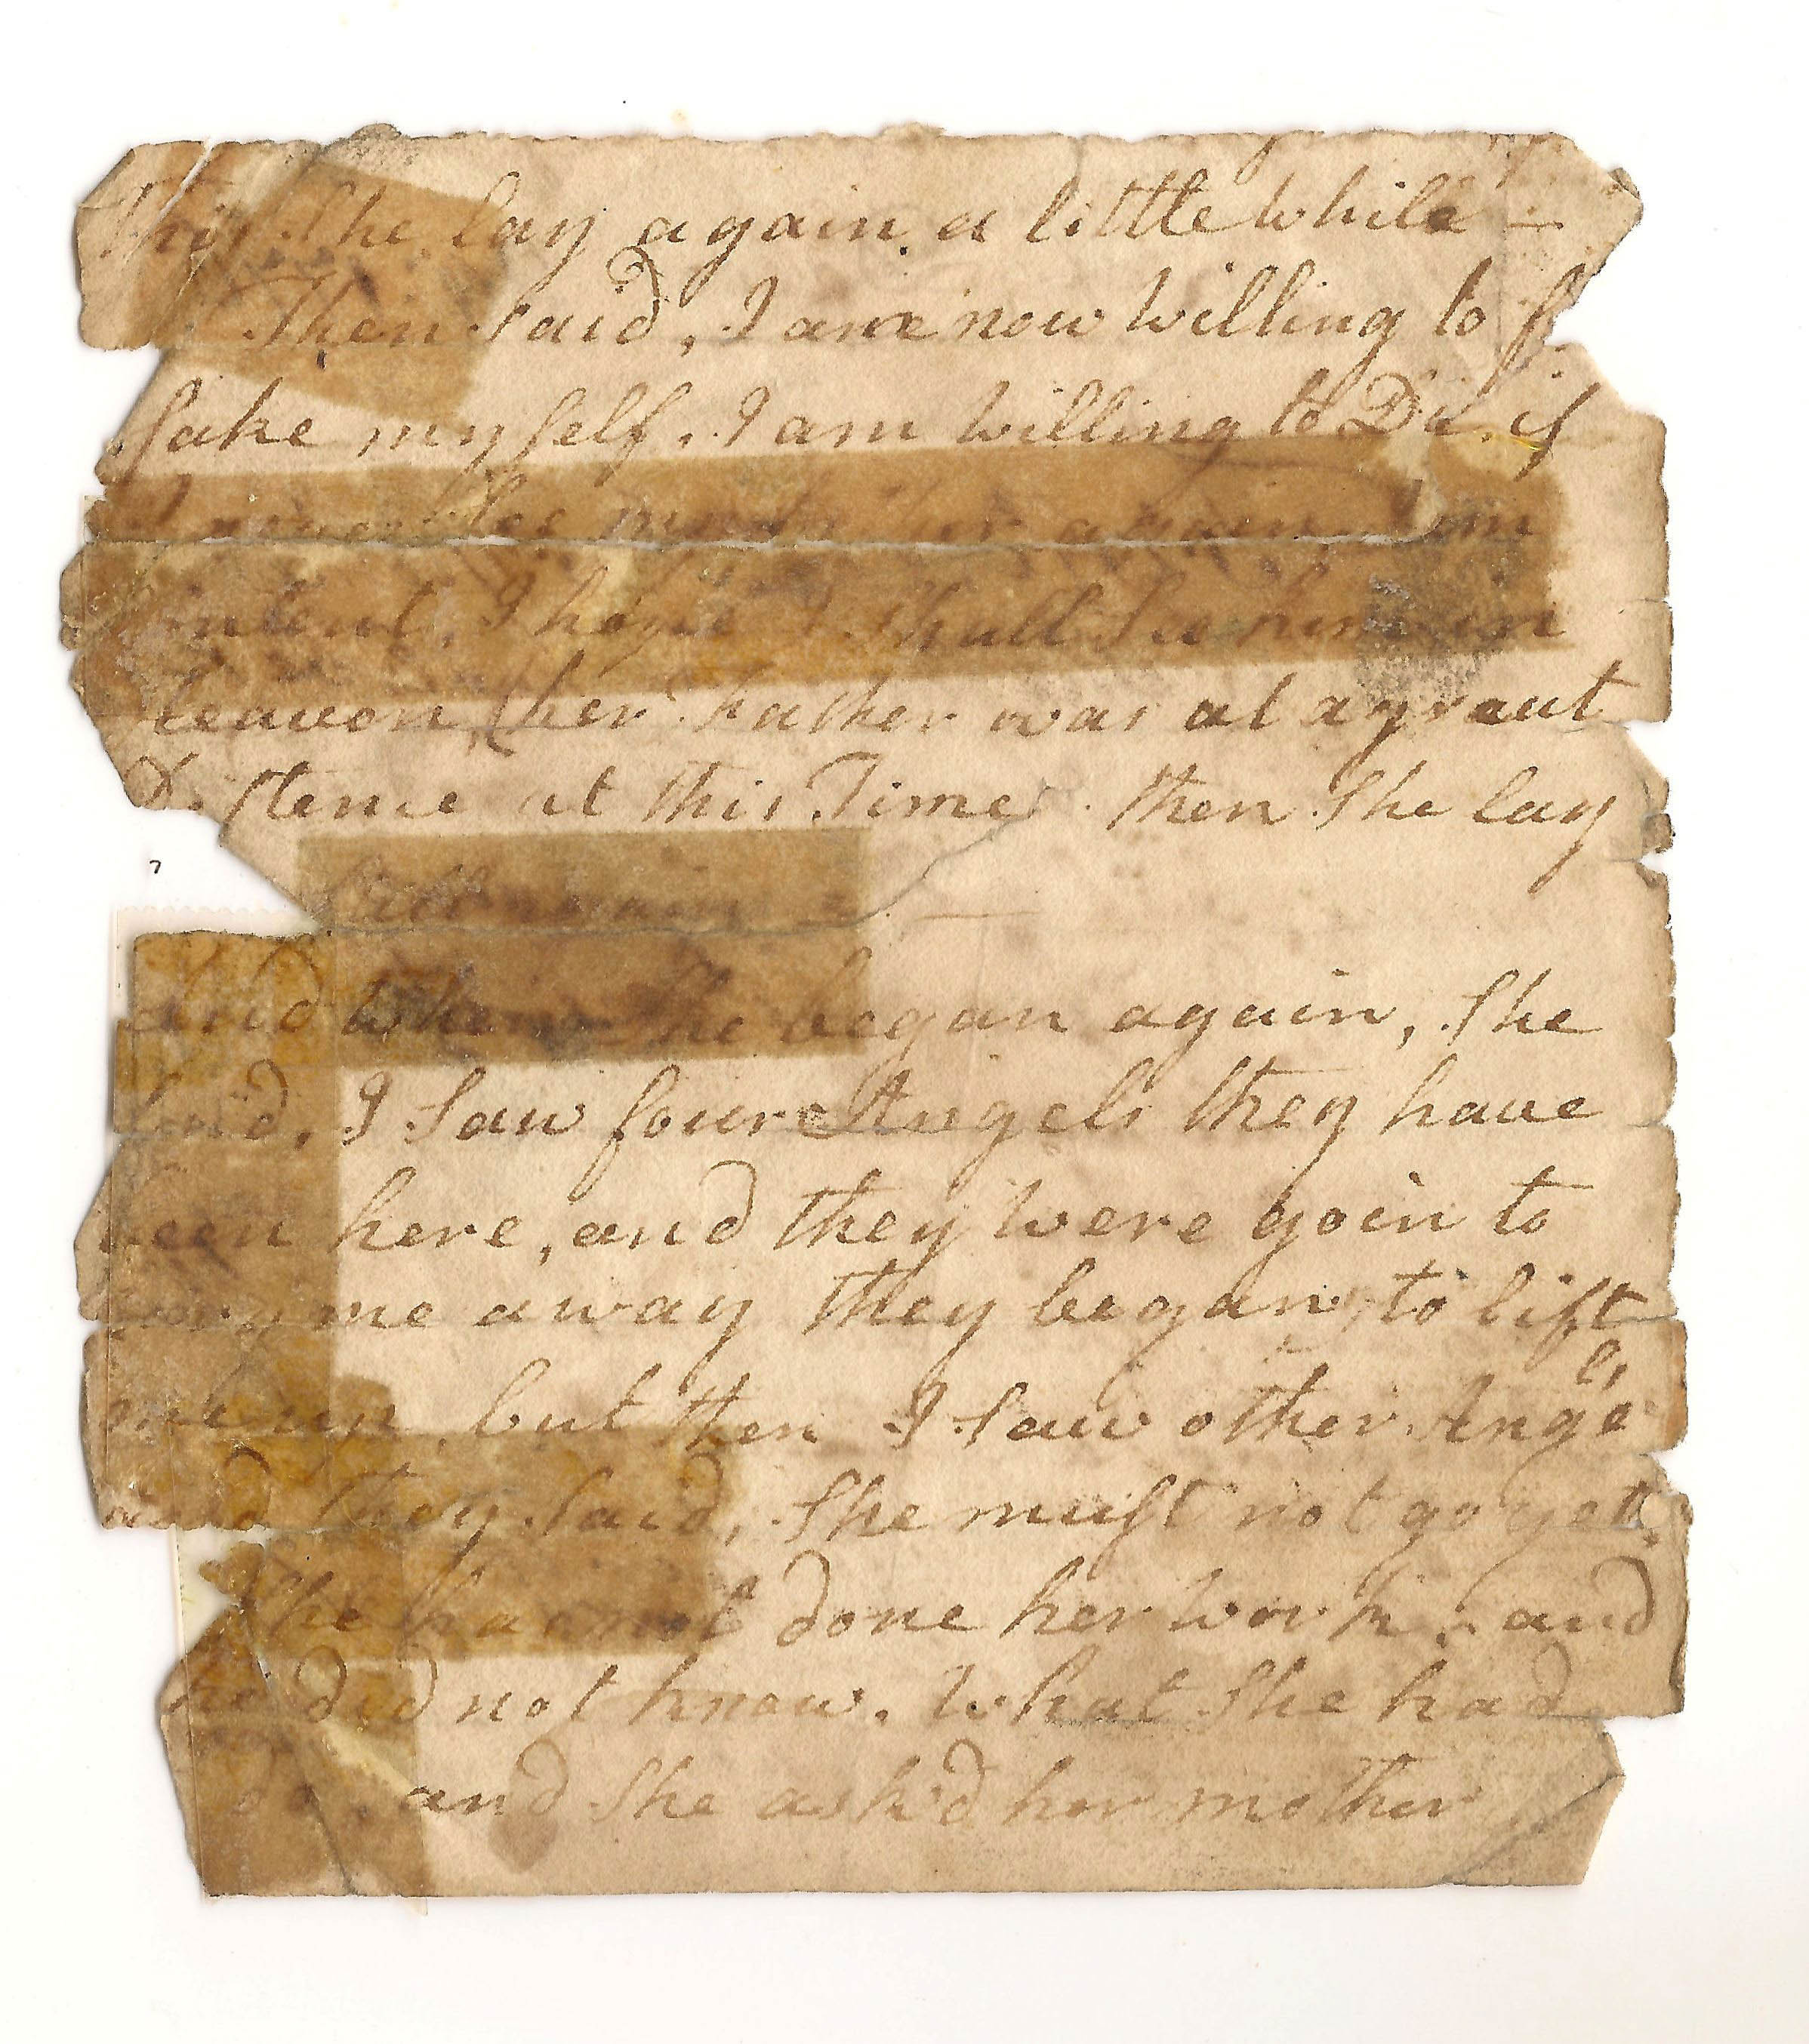 she lay again a little while —
then said, I am now willing to f
sake my self. I am willing to Die, if
I never see my father again, I am
content, I hope I shall See him in
heaven, (her Father was at a great
Distence at this Time) then she lay
Still again =
and when she began again, She
Said, I Saw four Angels they have
been here, and they were goin to
me away they began to lift
me up, but then I Saw other Angels
and they Said, She must not go yet
She has not done her work, and
he did not know, what she had
do, and She ask'd her mother